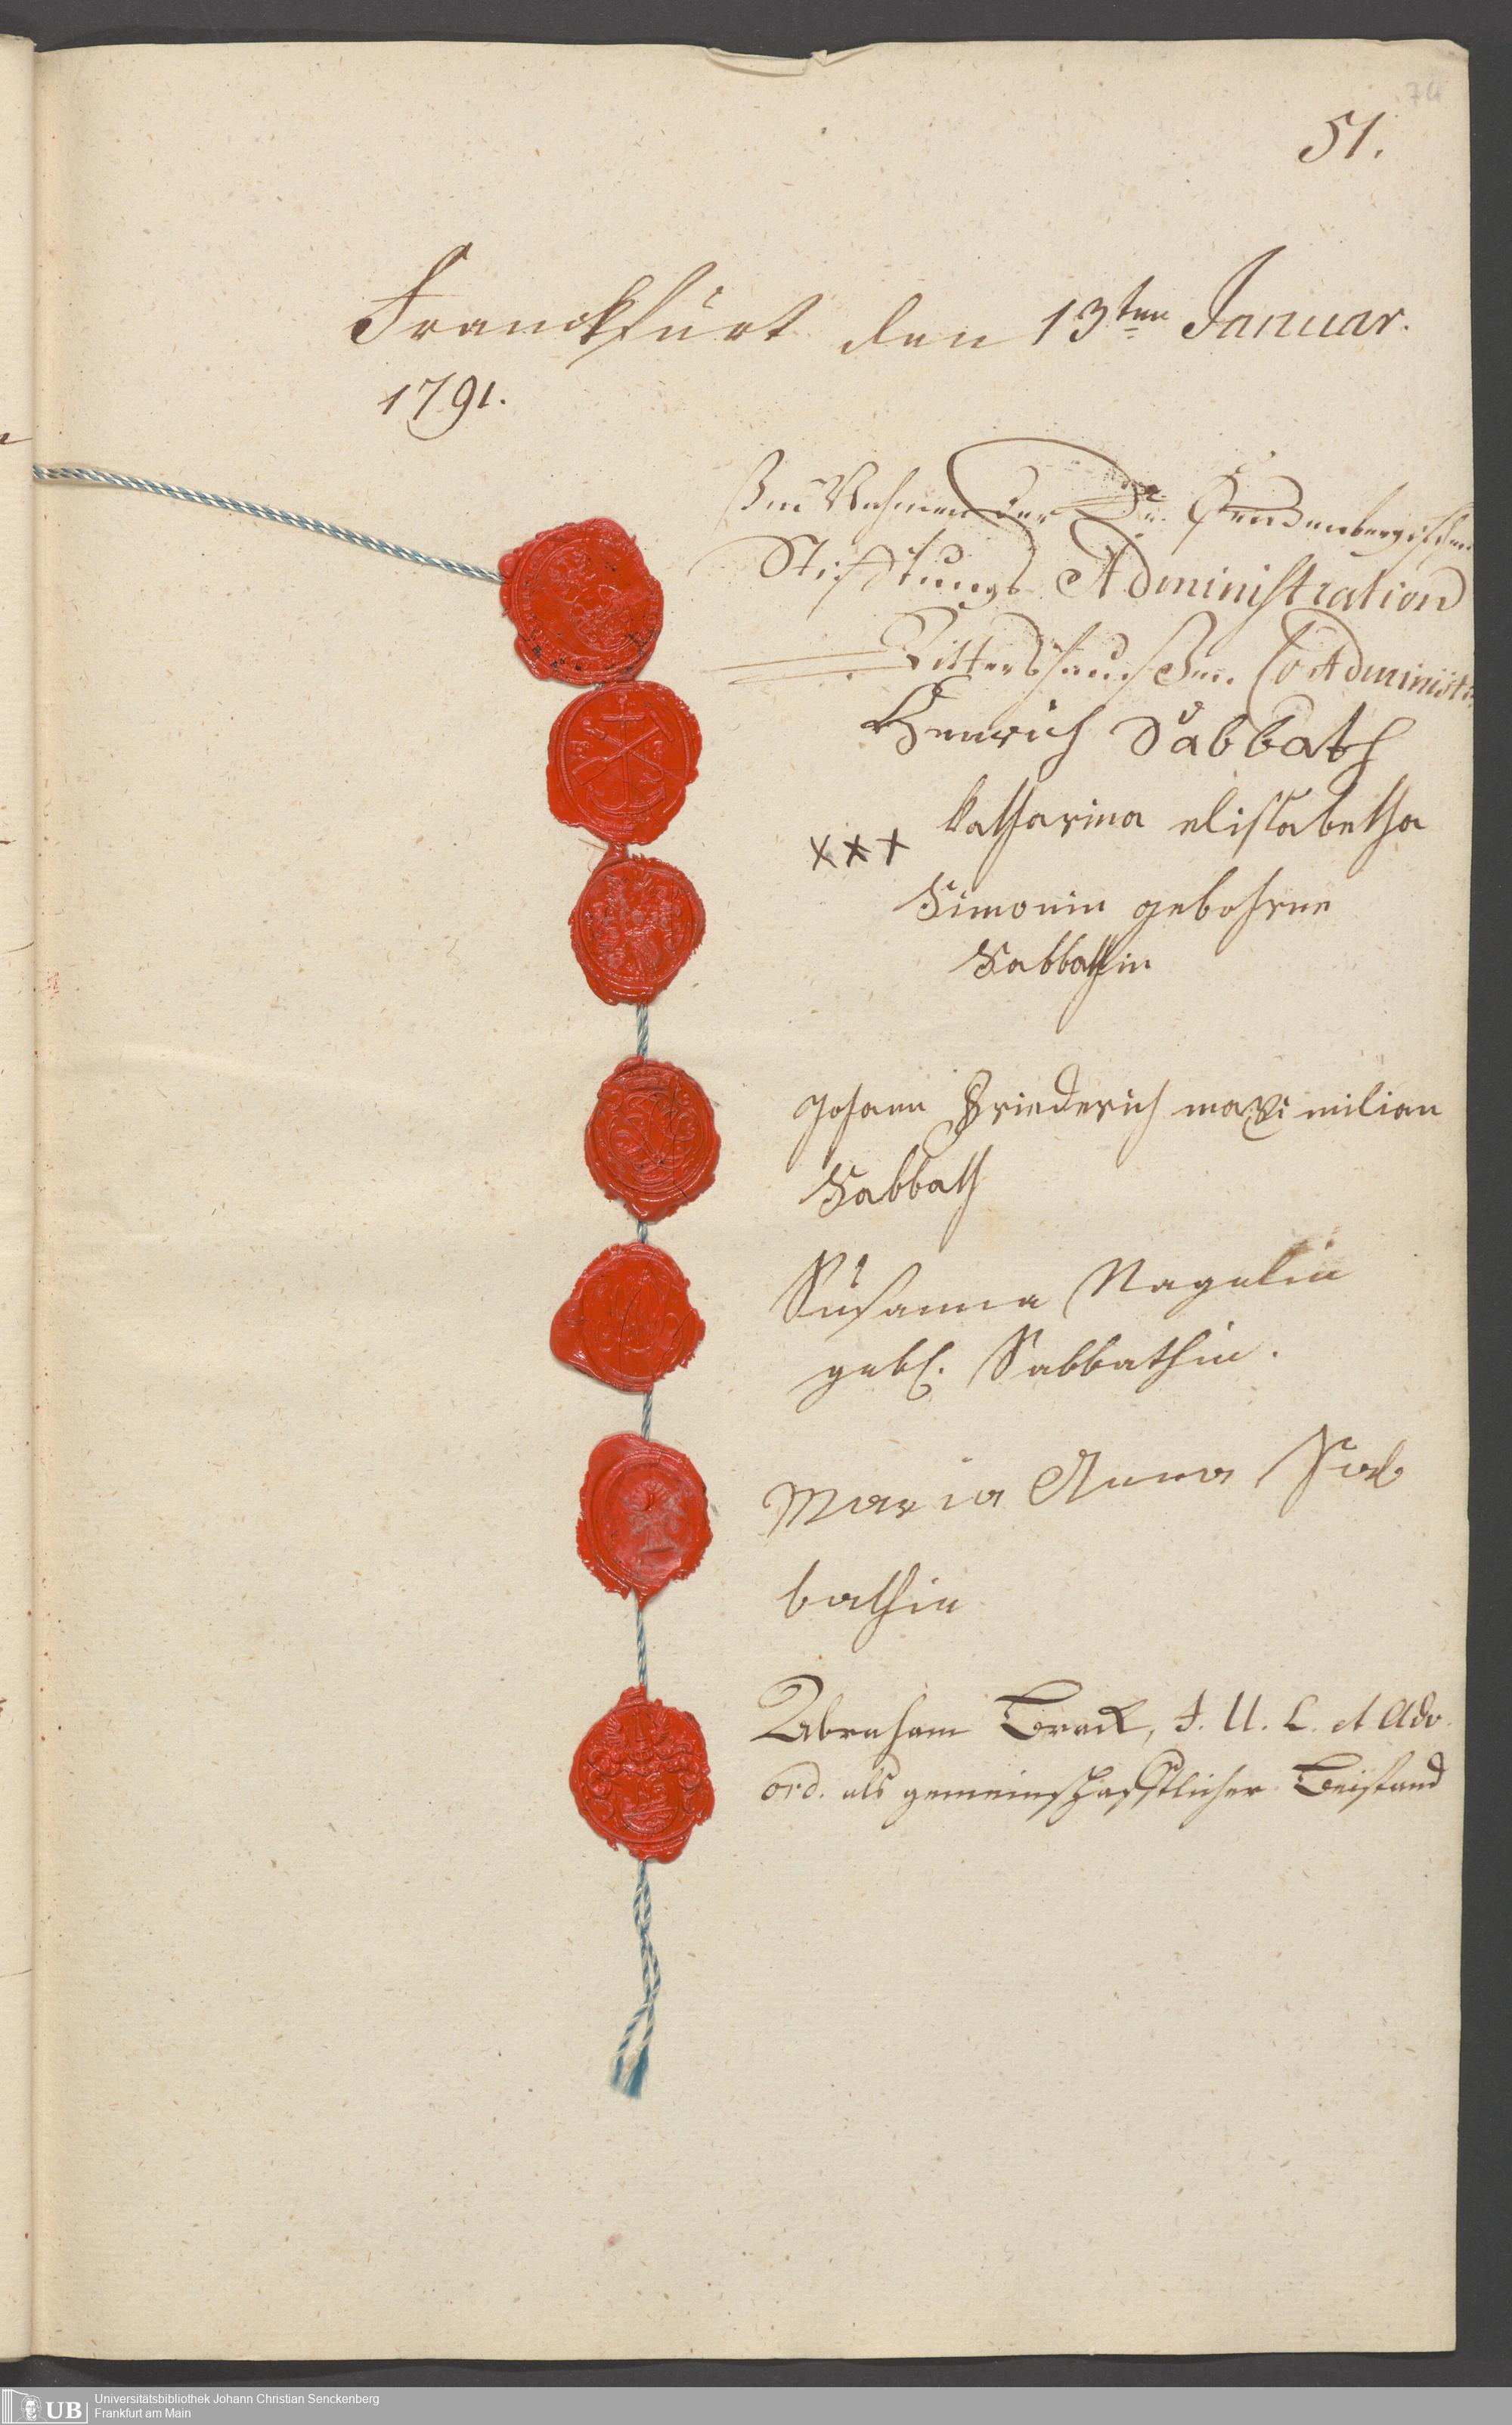 51.
Franckfurt den 13ten Januar.
1791.
Im Nahmen der Dr. Senckenbergischen
Stifftungs Administration
Rittershaussen. CoAdministr.
Henrich Sabbath
Catharina elisabetha
xxx
Simonin gebohrne
Sabbathin
Johann Friederich maximilian
Sabbath
Susanna Nagelin
gebh. Sabbathin.
Maria Anna Sab
bathin
Abraham Brack, J. U. L. et Adv.
ord. als gemeinschafftlicher Beistand
UB
Universitätsbibliothek Johann Christian Senckenberg
Frankfurt am Main